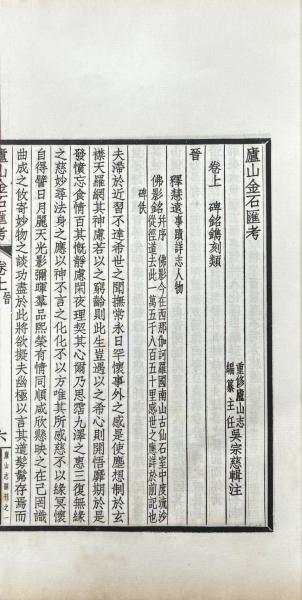 廬山金石匯考
卷上　碑銘鐫刻類
重修廬山志
編纂主任吳宗慈輯注
晉
釋慧遠事蹟詳志人物
佛影銘并序　佛影今在西那伽訶羅國南山古仙石室中度流沙
從徑道去此一萬五千八百五十里感世之應詳於前記也
碑佚
夫滯於近習不達希世之聞撫常永日罕懷事外之感是使塵想制於玄
襟天羅網其神慮若以之窮齡則此生豈遇以之希心則開悟靡期於是
發憤忘食情百其慨靜慮閑夜理契其心爾乃思霑九澤之惠三復無緣
之慈妙尋法身之應以神不言之化化不以方唯其所感慈不以緣冥懷
自得譬日月麗天光影彌暉羣品熙榮有情同順咸欣懸映之在己罔識
曲成之攸寄妙物之談功盡於此將欲擬夫幽極以言其道髣髴存焉而
廬山金石匯考
卷上　晉
六
廬山志副刊之一